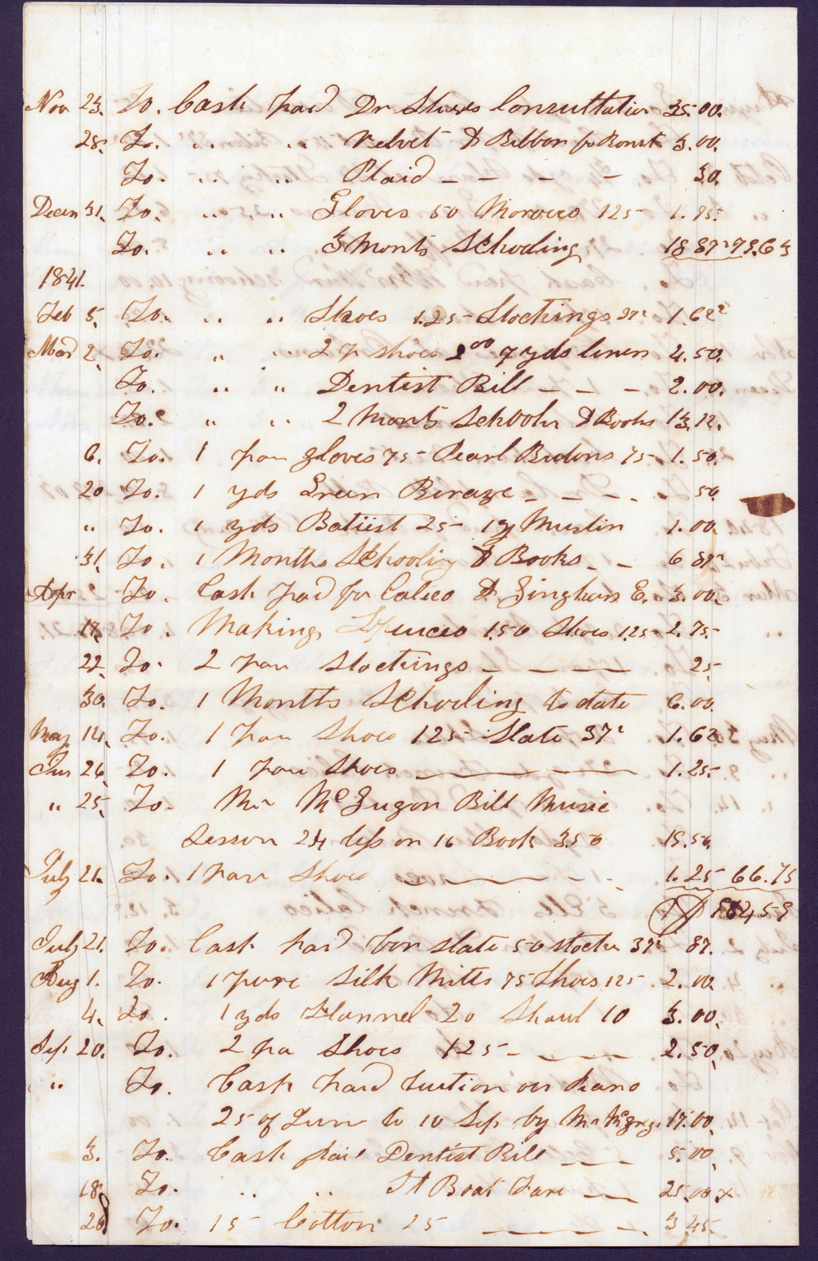 Nov 23. To. Cash paid Dr Consultation 35.00.
28. To. " " Velvet & Ribbon for Bonnt 3.00.
To. " " Plaid — — — — 30.
Decem 31. To. " " Gloves 50 Morocco 125 1.75
To. " " 3 Monts Schooling 18 87 79.63
1841.
Feb 5. To. " " Shoes 1.25 Stockings 37 1.62
Mar 2. To. " " 2 p shoes 2.00 9 yds linen 4.50.
To. " " Dentist Bill — — — 2.00.
To. " " 2 Monts School & Books 13.12.
6. To. 1 pair gloves 75 Pearl Butons 75 1.50.
20 To. 1 yds Green Beraze — — — 50
" To. 1 yds Batiist 25 1 y Muslin 1.00
31. To. 1 Months Schooling & Books — — 6 87
Apr To. Cash paid for Calico & Ginghum E. 3.00.
18. To. Making 150 Shoes 125 2.75
22. To. 2 pair Stockings — — — — 25
30. To. 1 Months Schooling to date 6.00
May 14. To. 1 pair Shoes 125 Slate 37 1.62
Jun 26. To. 1 pair Shoes — — — 1.25
" 25. To. Mr Bill Music
Lesson 24 less on 16 Book 350 19.50
July 21. To. 1 pair Shoes — — — 1.25 66.75
July 21. To. Cash paid for slate 50 stockn 37 87.
Aug 1. To. 1 pure Silk Mitts 75 Shoes 125 2.00.
4. To. 1 yds Flannel 20 Shaul 10 3.00.
Sep 20. To. 2 pa Shoes 125 — — — 2.50.
" To. Cash paid tuition on Piano
25 of June to 10 Sep by Mr 17.00.
3. To. Cash paid Dentist Bill — — 5.00.
18. To. " " St Boat Fare — — 25.00 x
20 To. 15 Cotton 25 — — — 3 45